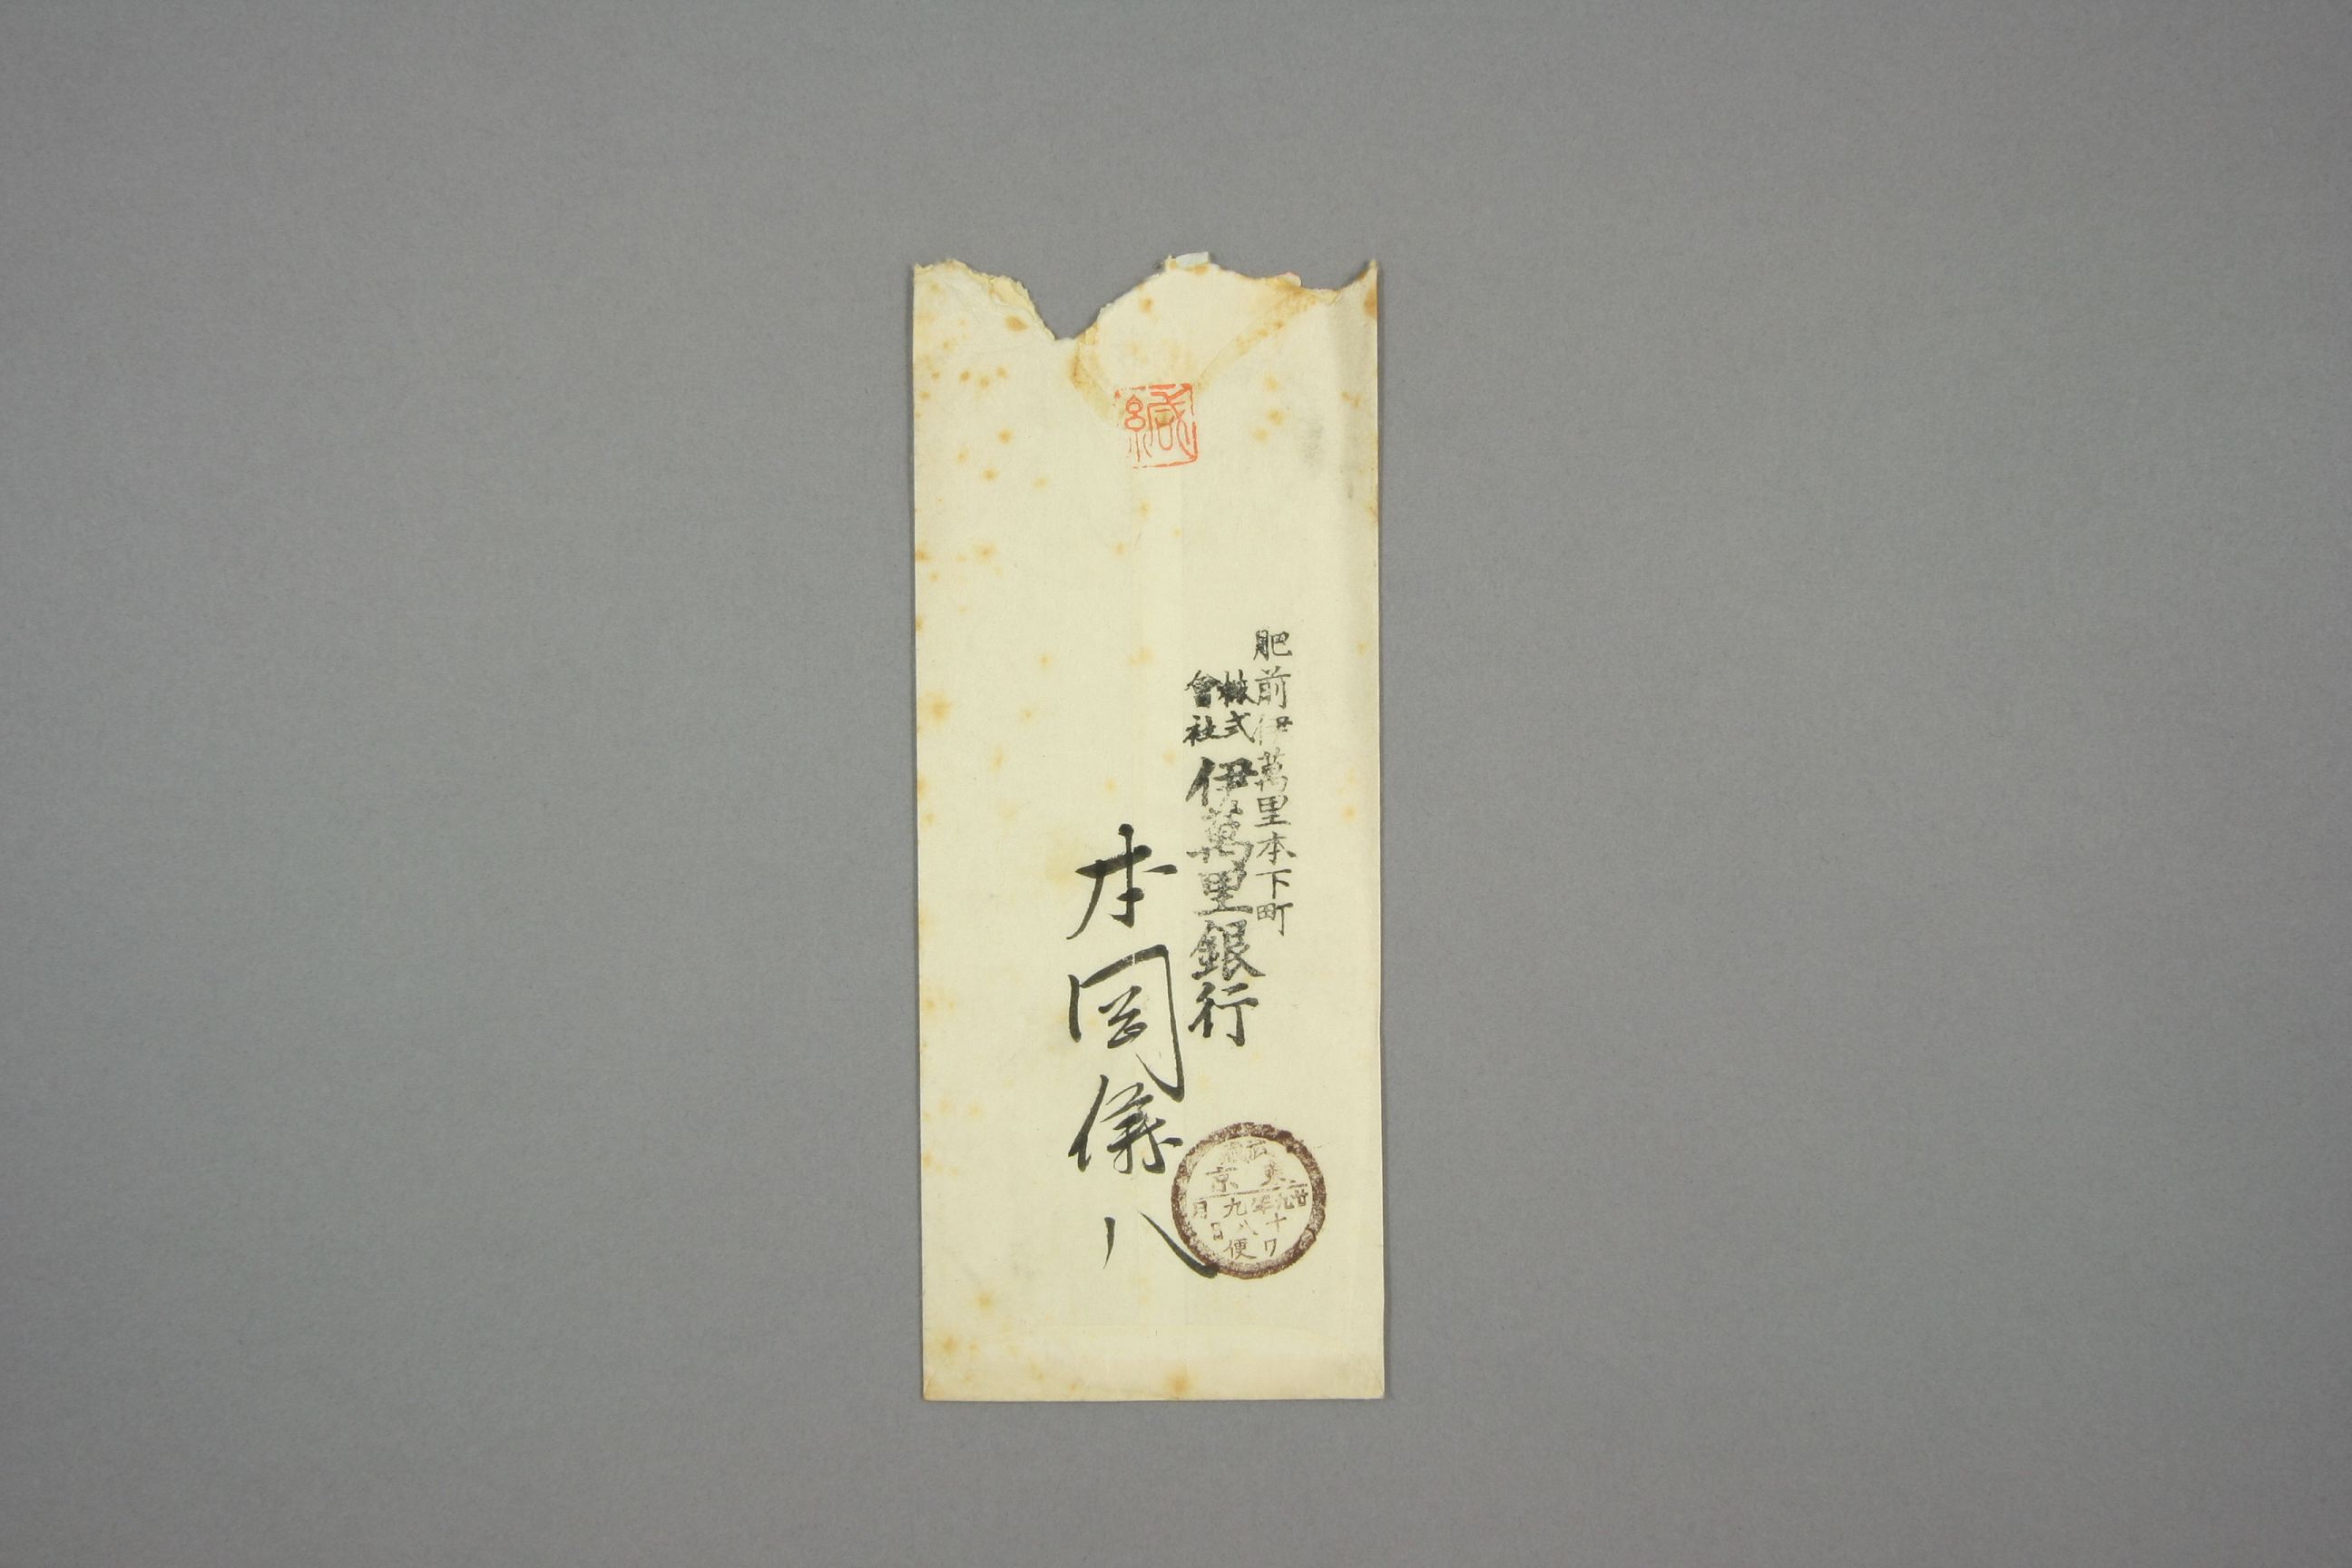 緘
肥前伊萬里本下町
株式會社伊萬里銀行
本岡儀八
東京
廿九年九月
十八日
便